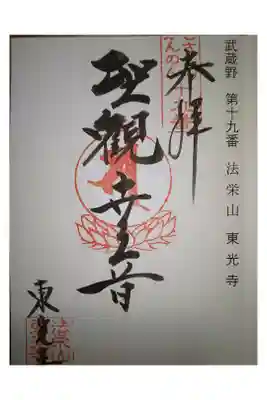 武蔵野 第十九番 法栄山 東光寺
奉拝
聖観世音
東光寺